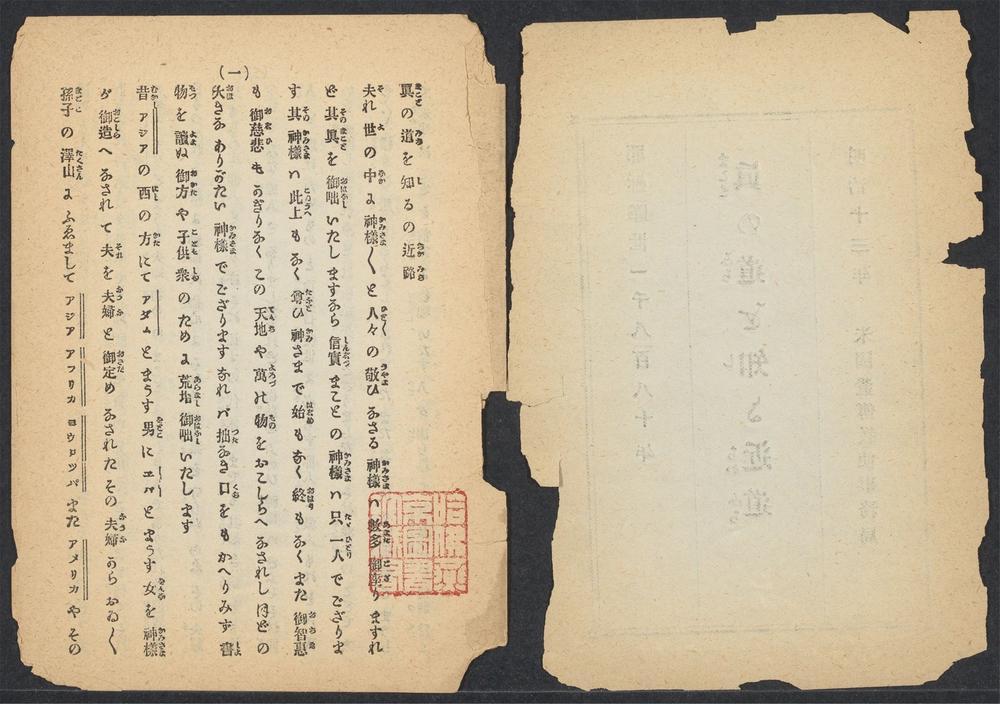 (一)
眞の道を知るの近路
夫れ世の中に神樣〱と人々の敬ひなさる神樣ハ數多御座りますれ
ど其眞を御咄いたしまするなら信實まことの神樣ハ只一人でござりま
す其神樣ハ此上もなく尊ひ神さまで始もなく終もなくまた御智惠
も御慈悲もかぎりなくこの天地や萬の物をおこしらへなされしほどの
大きなありがたい神樣でござりますなれバ拙なき口をもかへりみず書
物を讀ぬ御方や子供衆のために荒增御咄いたします
昔アジアの西の方にてアダムとまうす男にエバとまうす女を神樣
が御造へなされて夫を夫婦と御定めなされたその夫婦からおゐ〱
孫子の澤山にふゑましてアジアアフリカヨウロツパまたアメリカやその